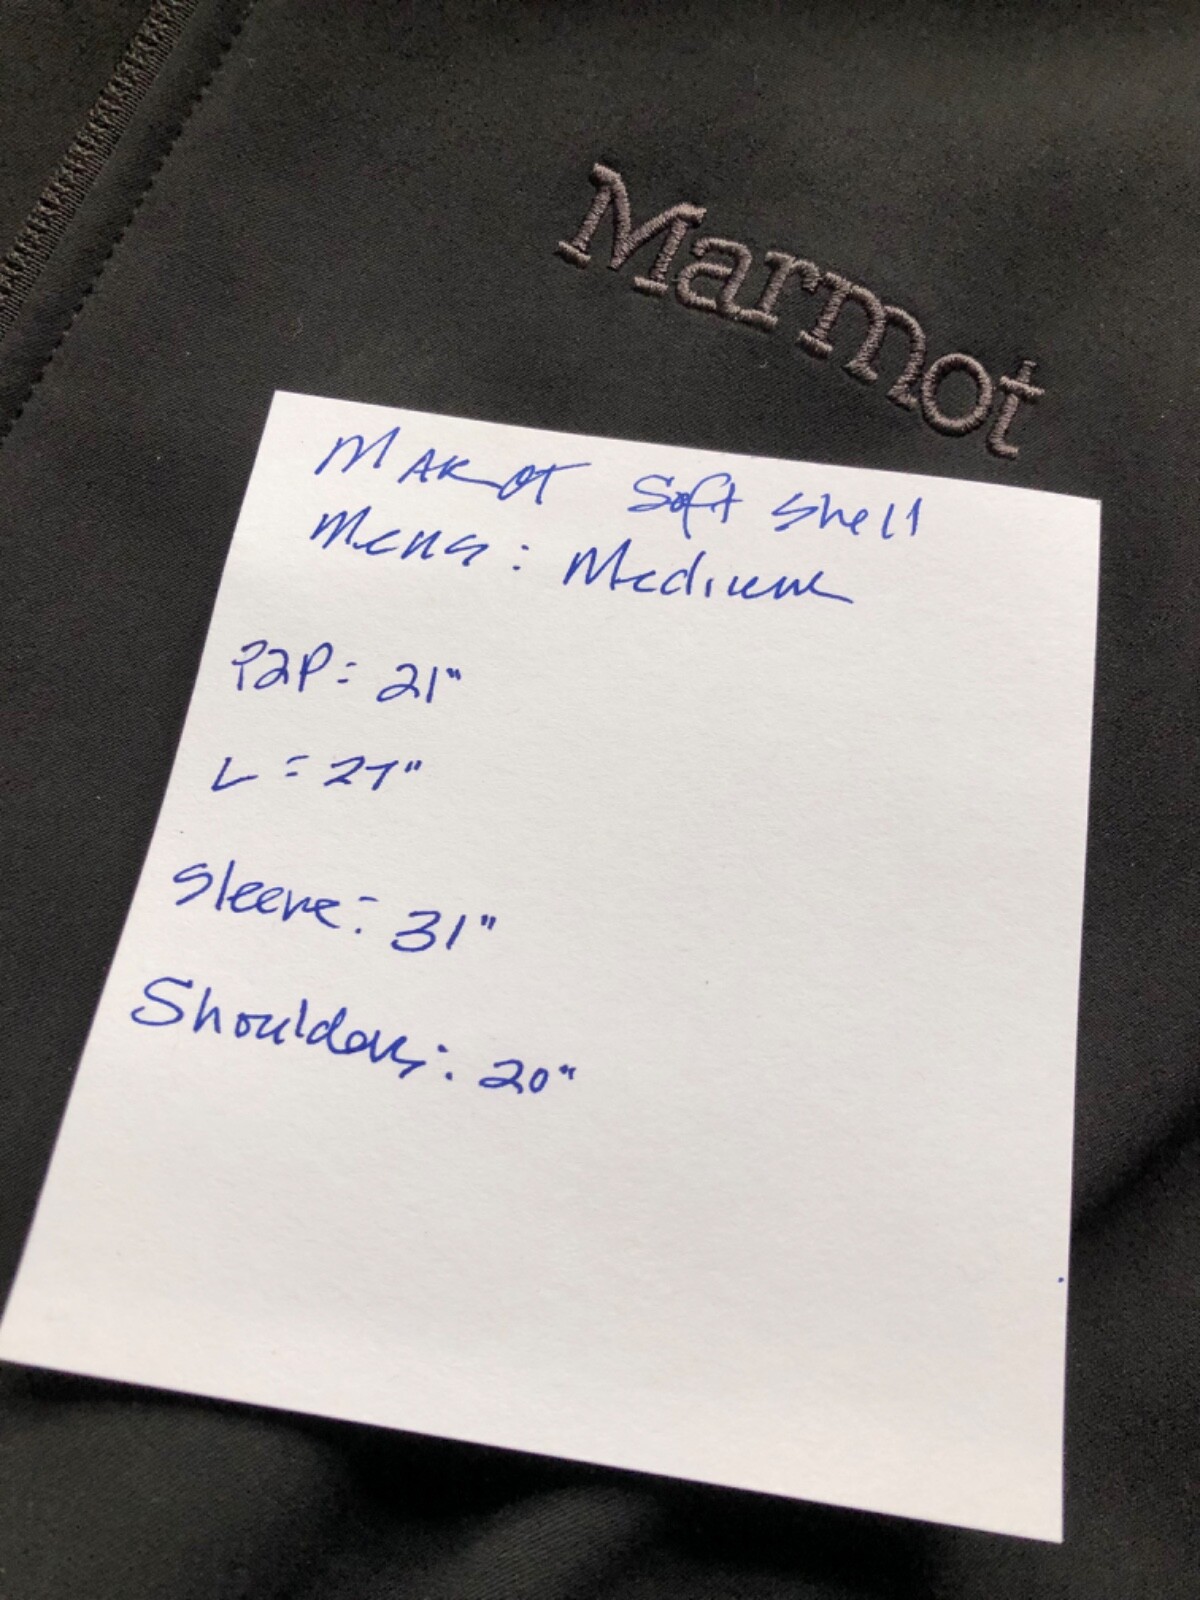 Marmot
MARmOT Soft shell
Mens: Medium
P2P: 21"
L = 27"
Sleeve: 31"
Shoulders: 20"